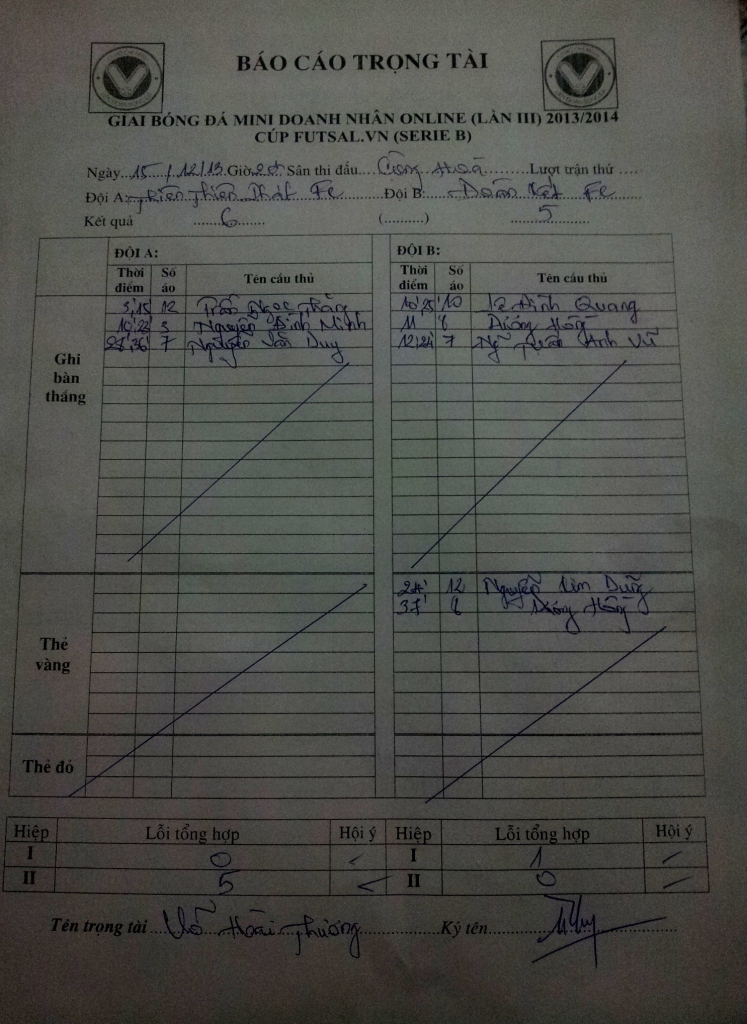 BÁO CÁO TRỌNG TÀI
GIẢI BÓNG ĐÁ MINI DOANH NHÂN ONLINE (LẦN III) 2013/2014
CÚP FUTSAL.VN (SERIE B)
Ngày 15/12/13 Giờ Sân thi đấu Cộng Hoà Lượt trận thứ
Đội A: Thiên Phát Fc Đội B: Đoàn Kết Fc
Kết quả 6 (..........) 5
ĐỘI A: ĐỘI B:
Thời điểm Số áo Tên cầu thủ Thời điểm Số áo Tên cầu thủ
Ghi bàn thắng
3',15' 12 Trần Ngọc Thắng 10',25' 10 Đình Quang
10',22' 3 Nguyễn Đình Minh 11' 8 Dương Hồng
28',36' 7 Nguyễn Văn Duy 12',24' 7 Ng Trần Anh Vũ
Thẻ vàng
24' 12 Nguyễn Dũng
37' 8 Dương Hồng
Thẻ đỏ
Hiệp Lỗi tổng hợp Hội ý Hiệp Lỗi tổng hợp Hội ý
I 0 I 1
II 5 II 0
Tên trọng tài Võ Hoài Thương Ký tên